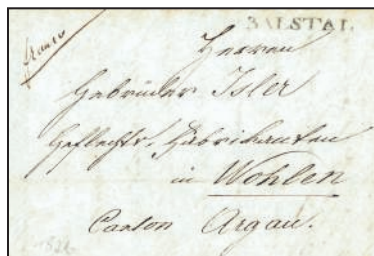 BALSTAL
franco
Herren
Gebrüder Isler
Geflecht-Fabrikanten
in Wohlen
Canton Argau.